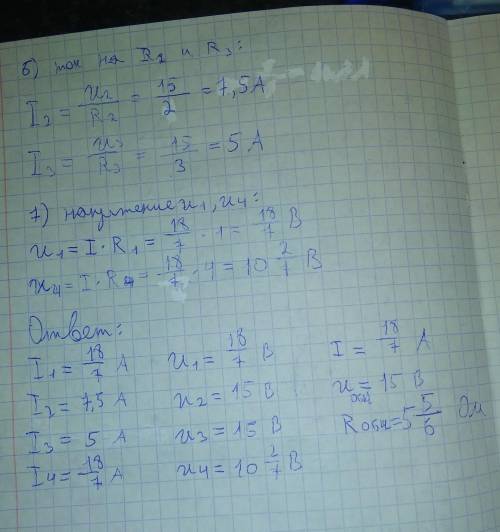 6) ток на R2 и R3:
I2 = U2/R2 = 15/2 = 7,5 A
I3 = U3/R3 = 15/3 = 5 A
7) напряжение U1, U4:
U1 = I · R1 = 18/7 · 1 = 18/7 В
U4 = I · R4 = 18/7 · 4 = 10 2/7 В
Ответ:
I1 = 18/7 A U1 = 18/7 В I = 18/7 A
I2 = 7,5 A U2 = 15 В U общ = 15 В
I3 = 5 A U3 = 15 В Rобщ = 5 5/6 Ом
I4 = 18/7 A U4 = 10 2/7 В